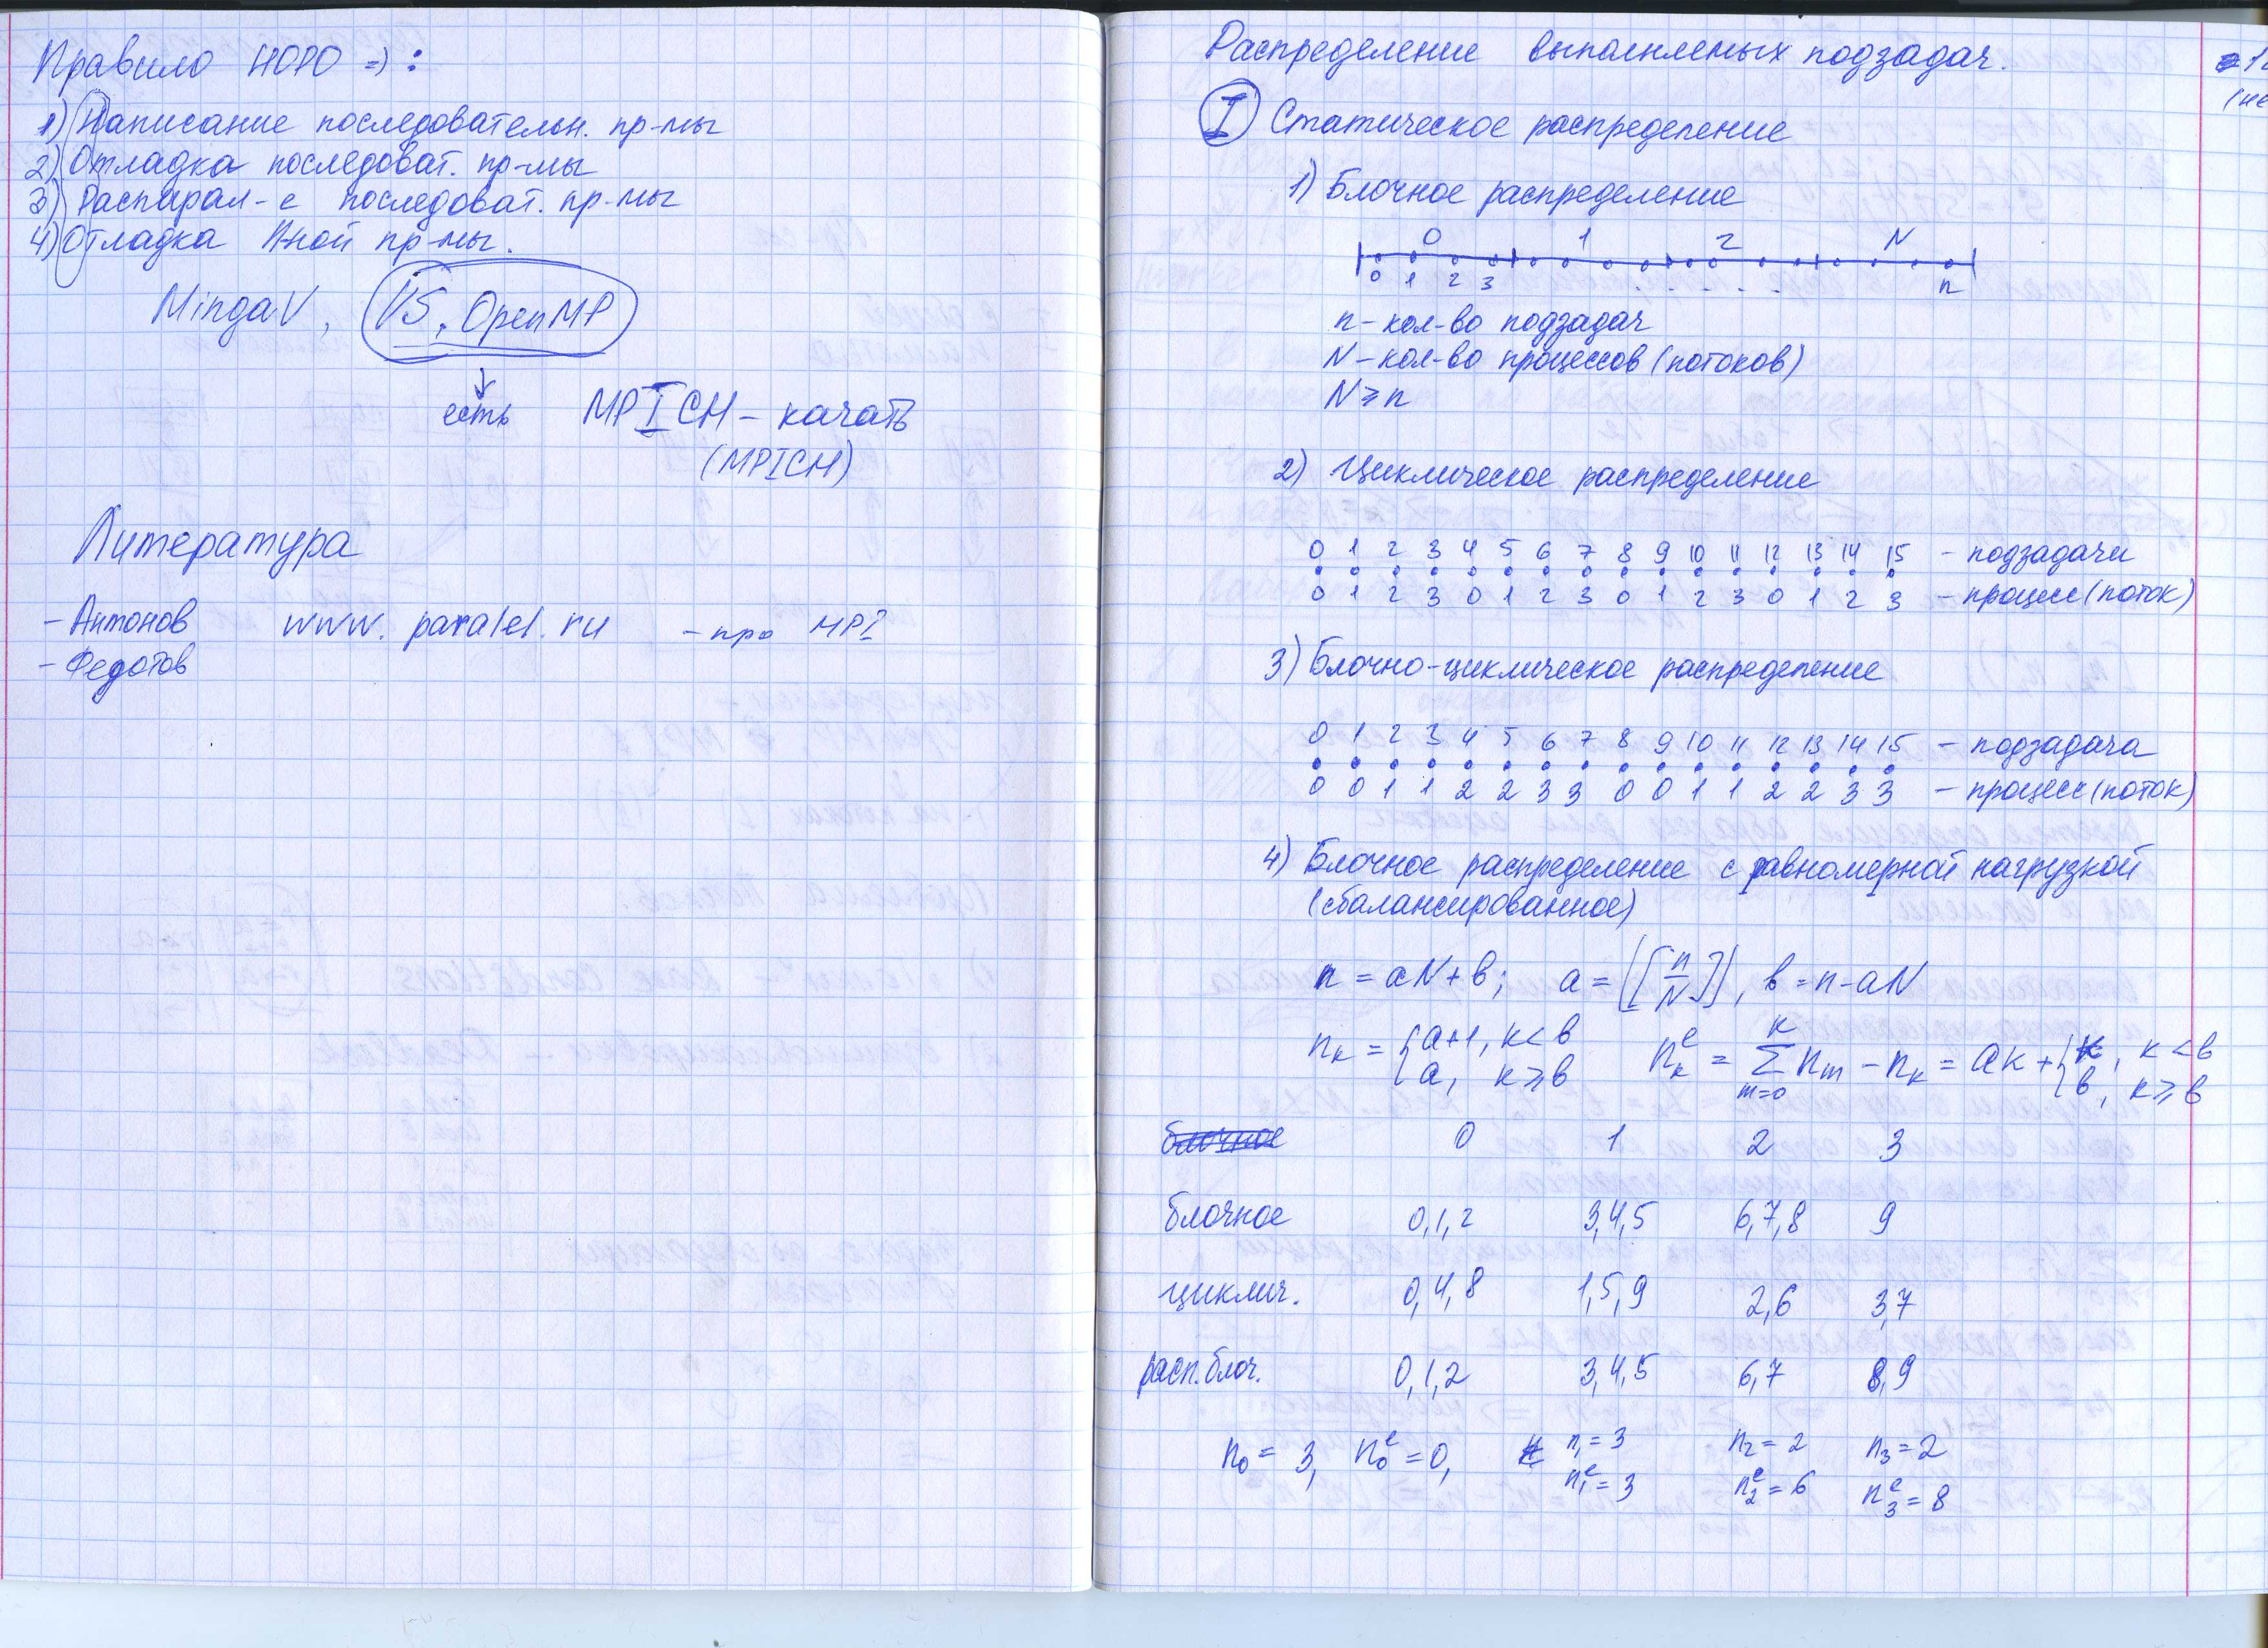 Правило НОРО => :
1) Написание последовательн. пр-мы
2) Отладка последоват. пр-мы
3) Распарал-е последоват. пр-мы
4) Отладка Пной пр-мы.
MingaV, VS, OpenMP
есть MPICH - качать
(MPICH)
Литература
- Антонов www.paralel.ru - про MPI
- Федотов
Распределение выполняемых подзадач.
I Статическое распределение
1) Блочное распределение
0 1 2 N
0 1 2 3 . . . . . n
n - кол-во подзадач
N - кол-во процессов (потоков)
N ⩾ n
2) Циклическое распределение
0 1 2 3 4 5 6 7 8 9 10 11 12 13 14 15 - подзадачи
0 1 2 3 0 1 2 3 0 1 2 3 0 1 2 3 - процесс (поток)
3) Блочно-циклическое распределение
0 1 2 3 4 5 6 7 8 9 10 11 12 13 14 15 - подзадача
0 0 1 1 2 2 3 3 0 0 1 1 2 2 3 3 - процесс (поток)
4) Блочное распределение с равномерной нагрузкой
(сбалансированное)
n = aN + b; a = [n/N], b = n - aN
n_k = { a+1, k < b; a, k ⩾ b n_k^e = ∑_{m=0}^{k} n_m - n_k = ak + { k, k < b; b, k ⩾ b
блочное 0 1 2 3
блочное 0,1,2 3,4,5 6,7,8 9
циклич. 0,4,8 1,5,9 2,6 3,7
расп.блоч. 0,1,2 3,4,5 6,7 8,9
n_0 = 3, n_0^e = 0, n_1 = 3 n_2 = 2 n_3 = 2
n_1^e = 3 n_2^e = 6 n_3^e = 8